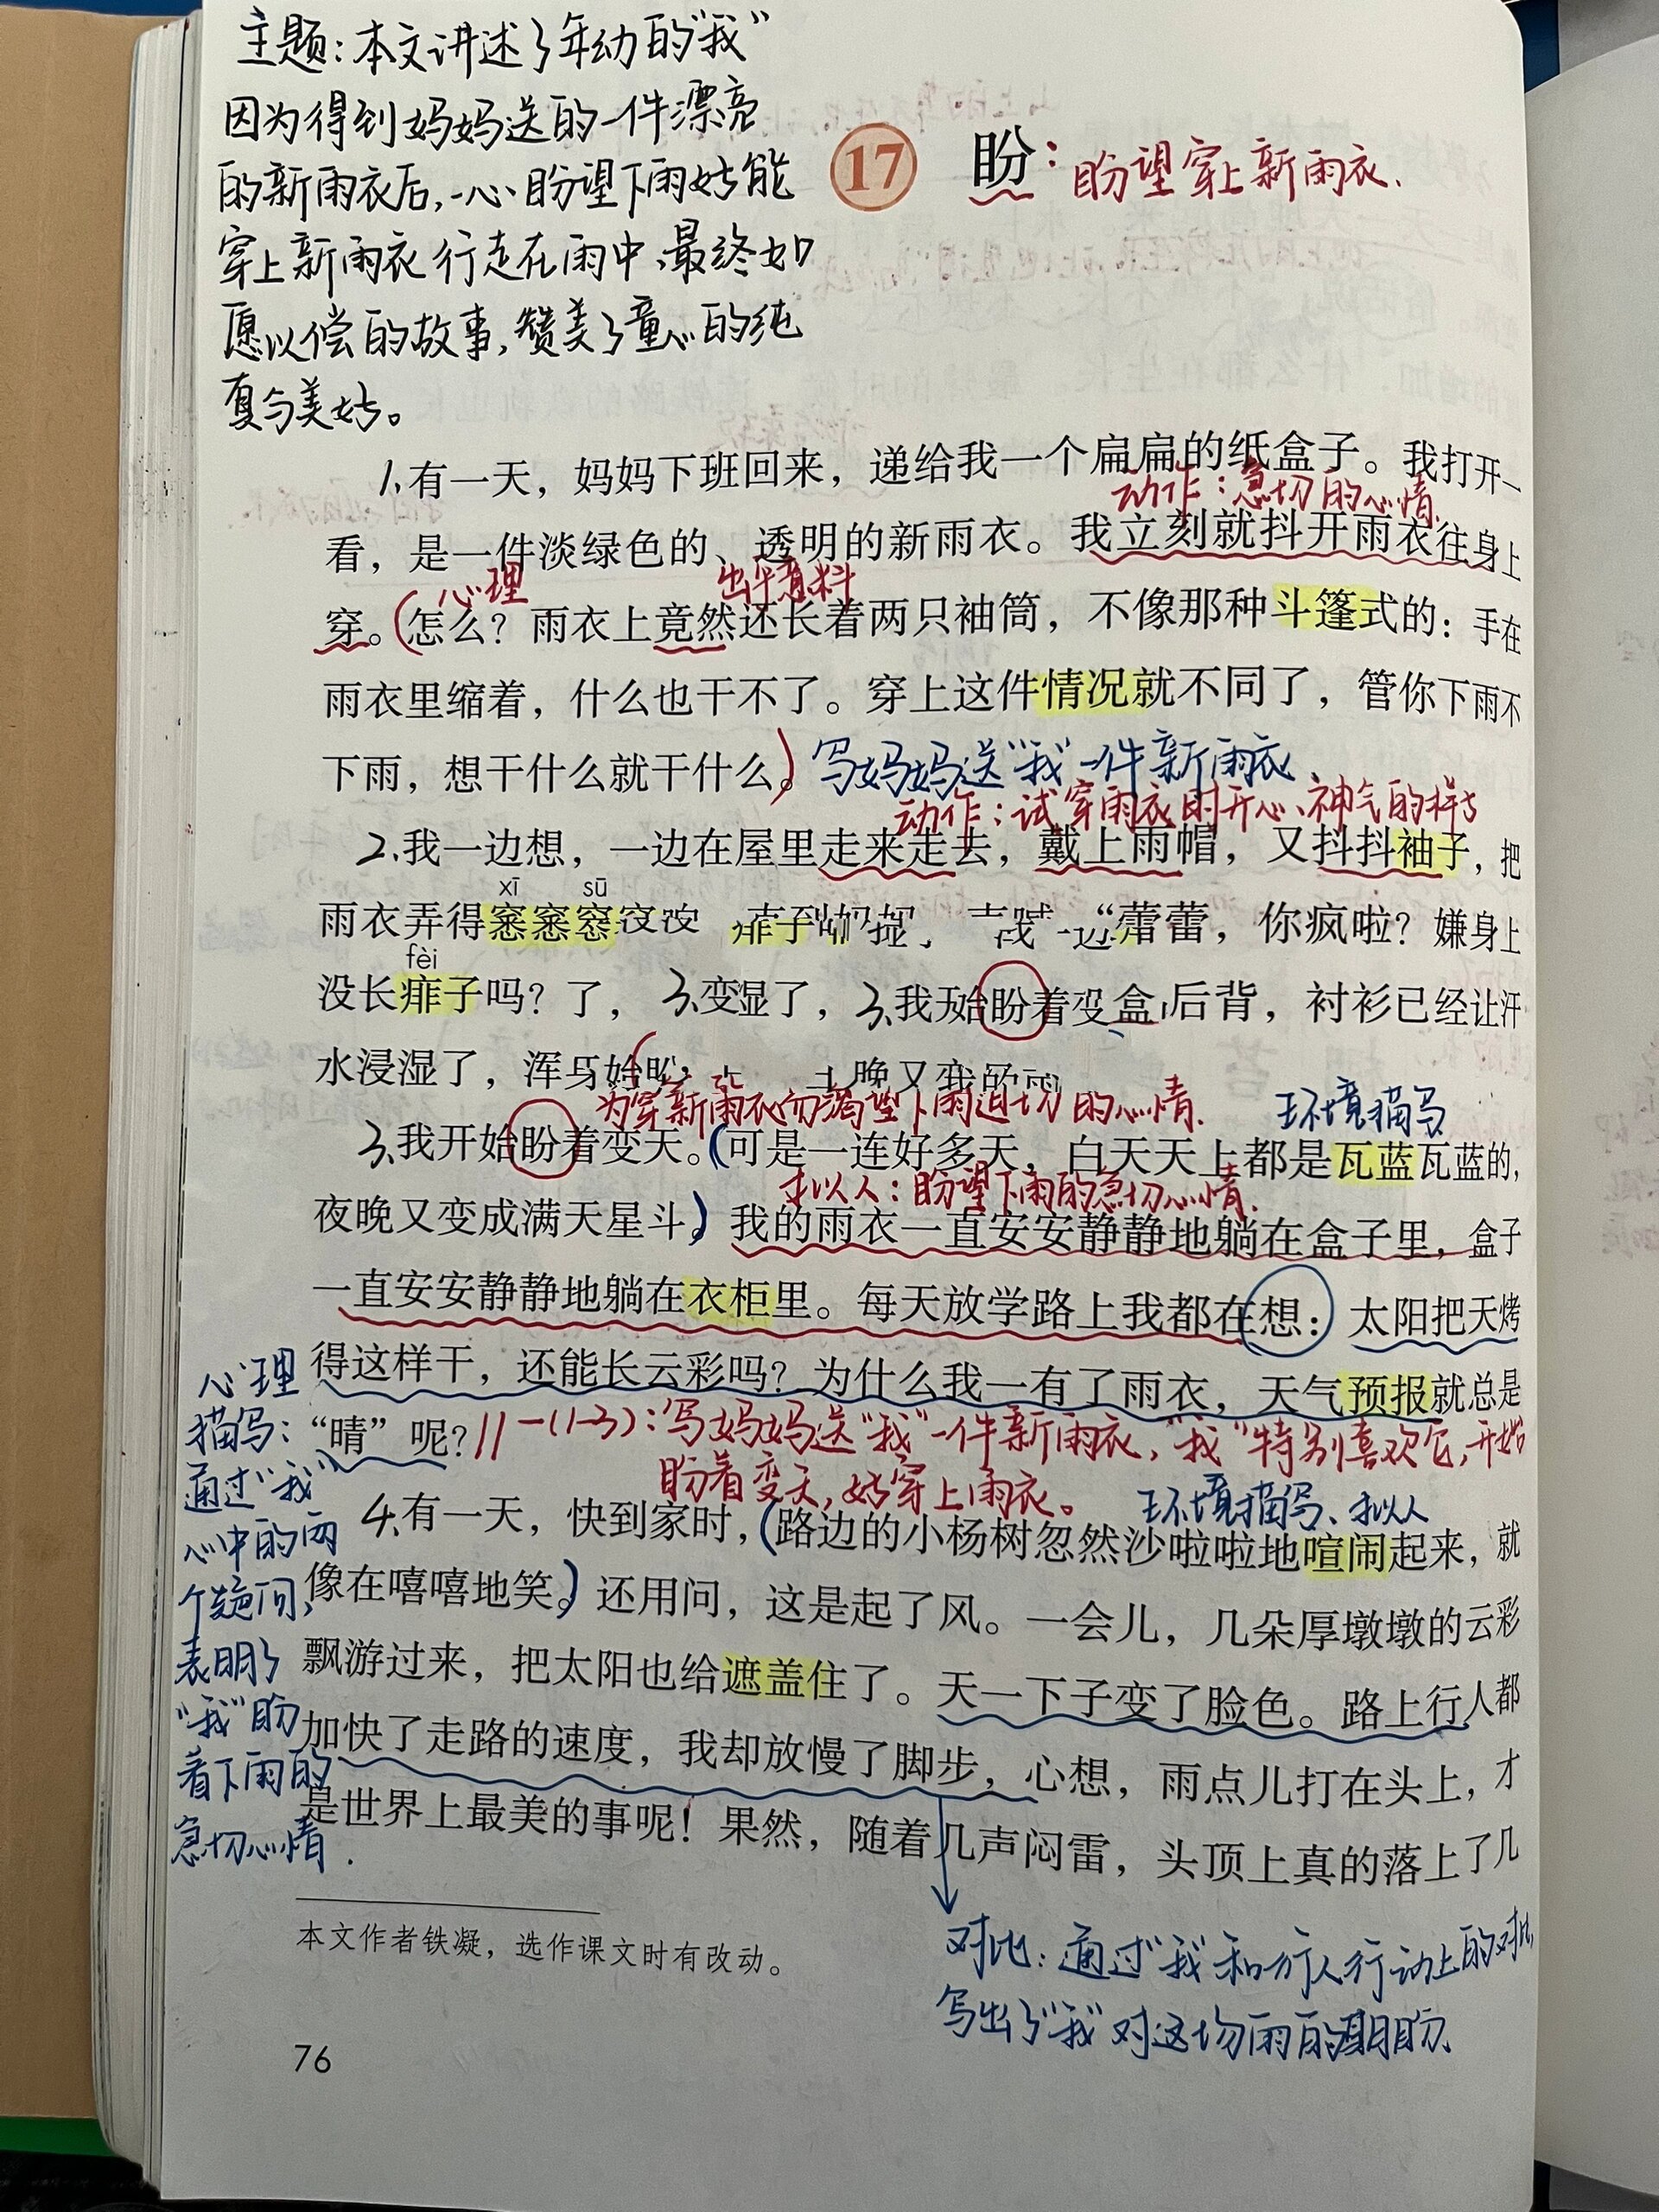 主题：本文讲述了年幼的“我”
因为得到妈妈送的一件漂亮
的新雨衣后，一心盼望下雨好能
穿上新雨衣行走在雨中、最终如
愿以偿的故事，赞美了童心的纯
真与美好。
17 盼：盼望穿上新雨衣.
1、有一天，妈妈下班回来，递给我一个扁扁的纸盒子。我打开一
动作：急切的心情.
看，是一件淡绿色的、透明的新雨衣。我立刻就抖开雨衣往身上
心理 出乎意料
穿。（怎么？雨衣上竟然还长着两只袖筒，不像那种斗篷式的：手在
雨衣里缩着，什么也干不了。穿上这件情况就不同了，管你下雨不
下雨，想干什么就干什么。）写妈妈送“我”一件新雨衣、
动作：试穿雨衣时开心、神气的样子
2、我一边想，一边在屋里走来走去，戴上雨帽，又抖抖袖子，把
xī sū
雨衣弄得窸窸窸 “蕾蕾，你疯啦？嫌身上
fèi
没长痱子吗？了， 3、变湿了，3、我开始盼着变盒后背，衬衫已经让汗
水浸湿了，浑 晚又变
为穿新雨衣而渴望下雨迫切的心情. 环境描写
3、我开始盼着变天。（可是一连好多天，白天天上都是瓦蓝瓦蓝的，
拟人：盼望下雨的急切心情.
夜晚又变成满天星斗）我的雨衣一直安安静静地躺在盒子里，盒子
一直安安静静地躺在衣柜里。每天放学路上我都在想：太阳把天烤
得这样干，还能长云彩吗？为什么我一有了雨衣，天气预报就总是
“晴”呢？||一(1-3)：写妈妈送“我”一件新雨衣，“我”特别喜欢它，开始
盼着变天，好穿上雨衣。
环境描写、拟人
4、有一天，快到家时，（路边的小杨树忽然沙啦啦地喧闹起来，就
像在嘻嘻地笑。）还用问，这是起了风。一会儿，几朵厚墩墩的云彩
飘游过来，把太阳也给遮盖住了。天一下子变了脸色。路上行人都
加快了走路的速度，我却放慢了脚步，心想，雨点儿打在头上，才
是世界上最美的事呢！果然，随着几声闷雷，头顶上真的落上了几
心理
描写：
通过“我”
心中的两
个疑问，
表明了
“我”盼
着下雨的
急切心情.
本文作者铁凝，选作课文时有改动。
对比：通过“我”和行人行动上的对比，
写出了“我”对这场雨的期盼、
76